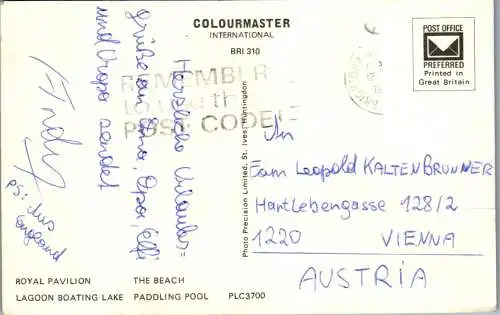 COLOURMASTER
INTERNATIONAL
BRI 310
POST OFFICE
PREFERRED
Printed in
Great Britain
REMEMBER
to use the
POST CODE
Herzliche Urlaubs=
grüße an Oma, Opa, Effi
und Uropa sendet
Andy
PS: Aus
England
Photo Precision Limited, St. Ives, Huntingdon
An
Fam Leopold KALTENBRUNNER
Hartlebengasse 128/2
1220 VIENNA
AUSTRIA
ROYAL PAVILION THE BEACH
LAGOON BOATING LAKE PADDLING POOL PLC3700